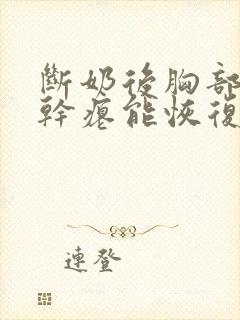 斷奶後胸部
幹癟能恢復
連登